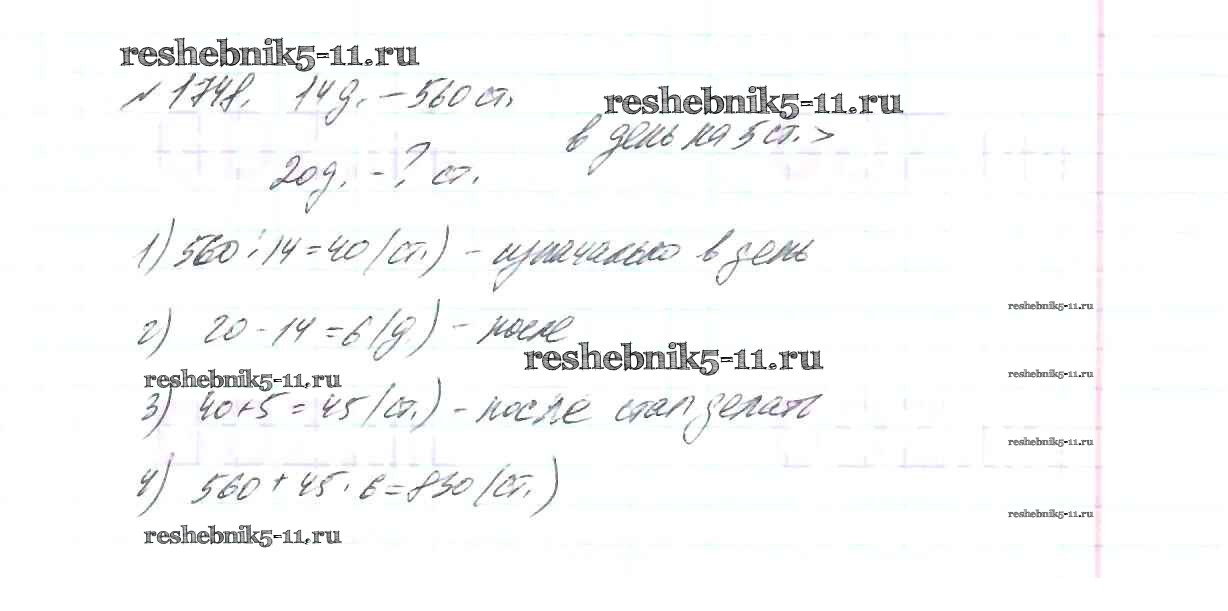 reshebnik5-11.ru
№ 1748. 14 д. – 560 ст.
reshebnik5-11.ru
в день на 5 ст. >
20 д. – ? ст.
1) 560 : 14 = 40 (ст.) – изначально в день
reshebnik5-11.ru
2) 20 - 14 = 6 (д.) – после
reshebnik5-11.ru
reshebnik5-11.ru
reshebnik5-11.ru
3) 40 + 5 = 45 (ст.) – после стал делать
reshebnik5-11.ru
4) 560 + 45 · 6 = 830 (ст.)
reshebnik5-11.ru
reshebnik5-11.ru